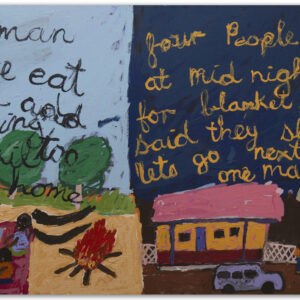 man
e eat
gold
ing
too
home
four People
at mid nigh
for blanket
said they s
lets go next
one ma